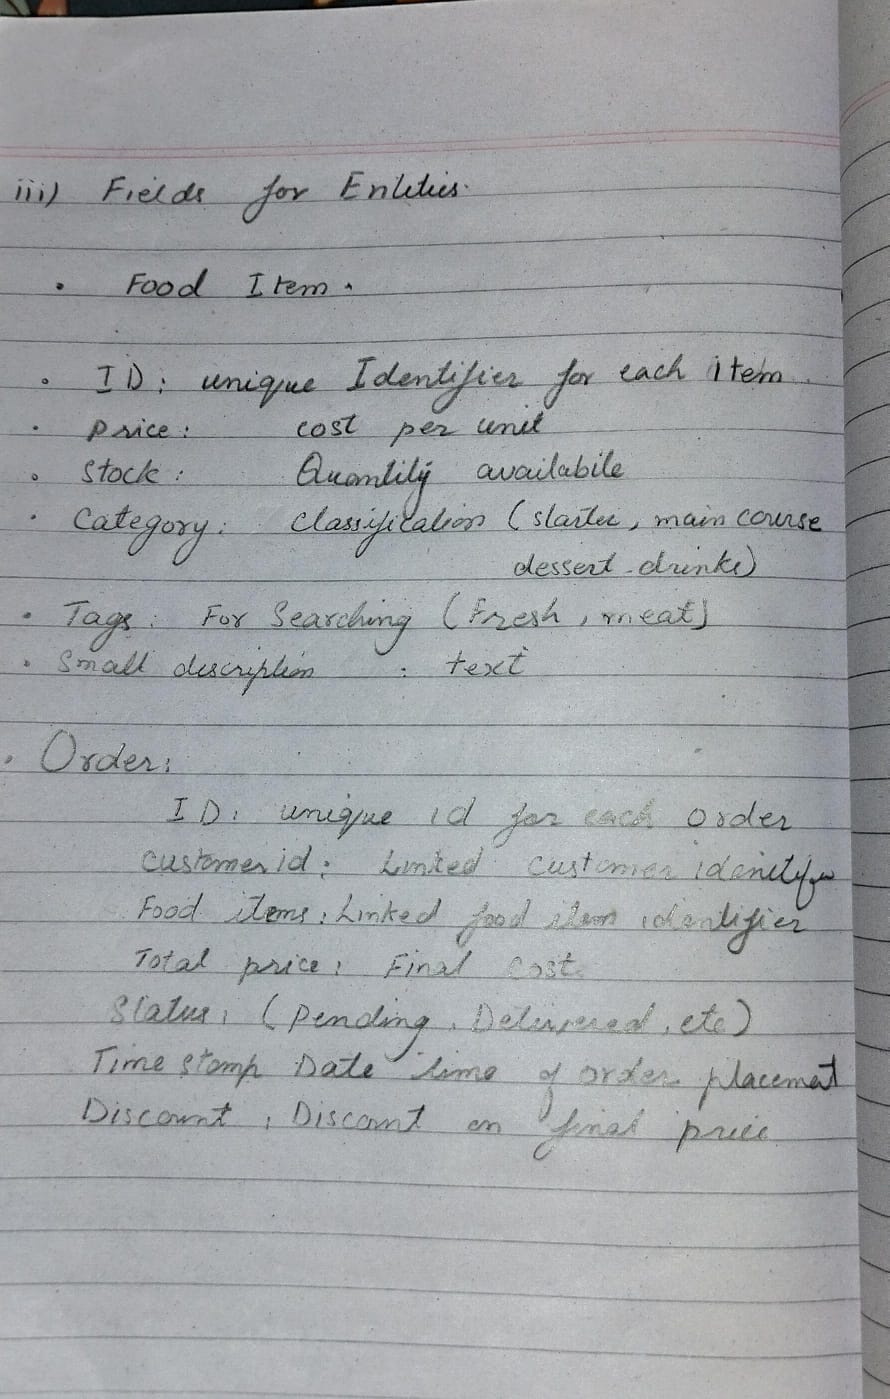 iii) Fields for Entities.
• Food Item.
• ID: unique Identifier for each item.
• Price: cost per unit
• Stock: Quantity availabile
• Category: Classification (starter, main course
dessert-drinks)
• Tags: For Searching (Fresh, meat)
• Small description : text
• Order:
ID: unique id for each order
customer id: Linked customer identifier
Food items: Linked food item identifier
Total price: Final cost.
Status: (Pending, Delivered, etc)
Time stamp Date time of order placement
Discount: Discount on final price